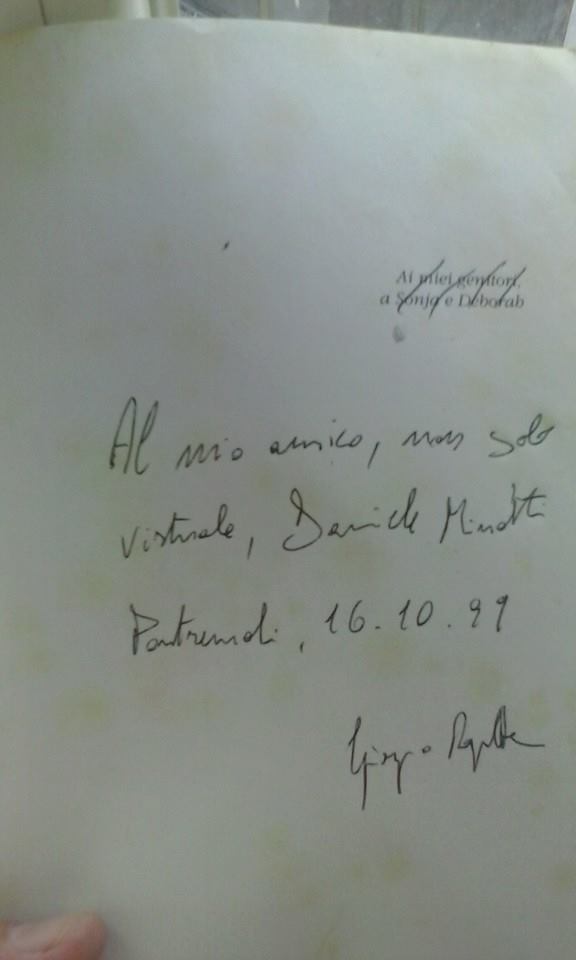 Ai miei genitori,
a Sonja e Deborah
Al mio amico, non solo
virtuale, Daniele Minotti
Pontremoli, 16.10.99
Giorgio